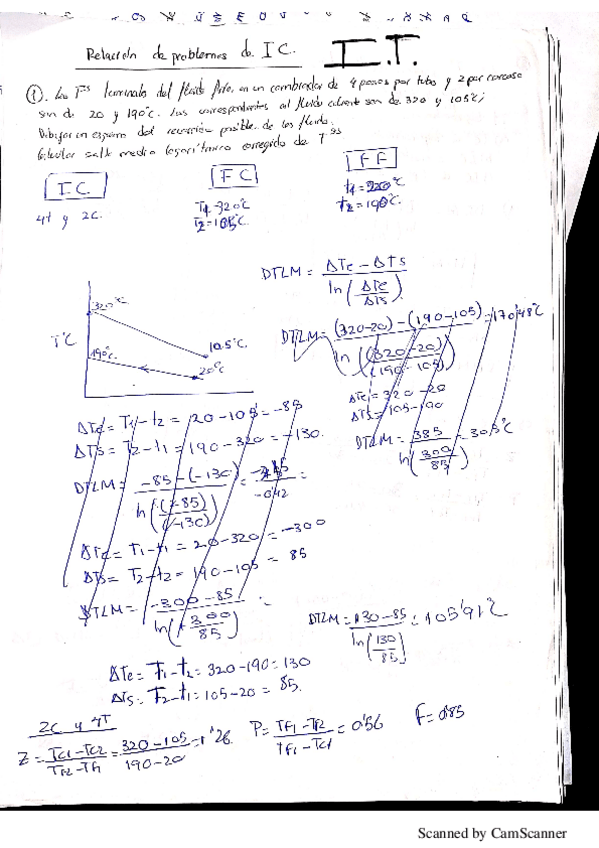 Relación de problemas de I C. I.T.
①. Las Tªs terminales del fluido frío, en un cambiador de 4 pasos por tubo y 2 por carcasa
son de 20 y 190°C. Las correspondientes al fluido caliente son de 320 y 105°C;
Dibujar un esquema del recorrido posible de los fluidos.
Calcular salto medio logarítmico corregido de Tªs
I.C. FC FF
4t y 2C. T1=320°C t1=20°C
T2=105°C t2=190°C.
DTLM = ΔTe - ΔTs
ln(ΔTe/ΔTs)
320°C
T°C
105°C
190°C.
20°C
DTLM = (320-20)-(190-105) = 170'48°C
ln((320-20)/(190-105))
ΔTe = 320-20
ΔTs = 105-190
DTLM = 385 = 305°C
ln(300/85)
ΔTe = T1-t2 = 20-105 = -85
ΔTs = T2-t1 = 190-320 = -130.
DTLM = -85-(-130) =
-0'42
ln((-85)/(-130))
ΔTe = T1-t1 = 20-320 = -300
ΔTs = T2-t2 = 190-105 = 85
DTLM = -300-85
ln(300/85)
DTLM = 130-85 = 105'91°C
ln(130/85)
ΔTe = T1-t2 = 320-190 = 130
ΔTs = T2-t1 = 105-20 = 85.
2C y 4T
Z = Tc1-Tc2 = 320-105 = 1'26. P = Tf1-Tf2 = 0'56 F = 0'85
Tf2-Tf1 190-20 Tf1-Tc1
Scanned by CamScanner